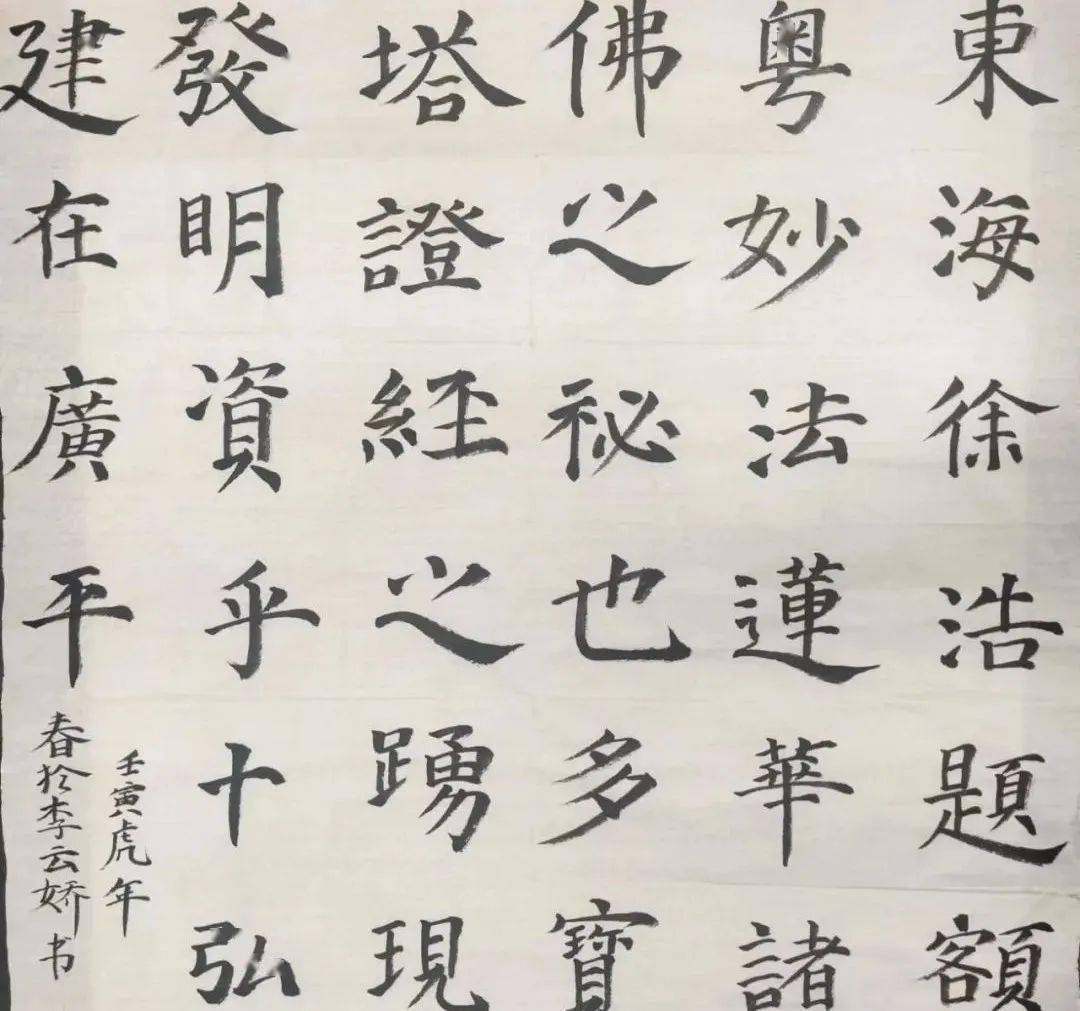 東海徐浩題額
粵妙法蓮華諸
佛之祕也多寶
塔證經之踴現
發明資乎十弘
建在廣平
壬寅虎年
春於李云娇书